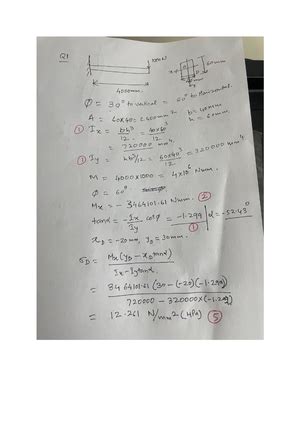 Q1
1000N
60mm
4000mm.
φ = 30° to vertical = 60° to Horizontal.
A = 60×40 = 2400mm² b = 40mm
h = 60mm
① Ix = bh³/12 = 40×60³/12
= 720000 mm⁴.
① Iy = hb³/12 = 60×40³/12 = 320000 mm⁴
M = 4000×1000 = 4×10⁶ Nmm.
φ = 60°
Mx = - 3464101.61 Nmm. ②
tanα = -Ix/Iy cotφ = -1.299 | α = -52.43°
①
xD = -20mm, yD = 30mm.
σD = Mx(yD - xD tanα)
Ix - Iy tanα
= 3464101.61 (30 - (-20)(-1.299))
720000 - 320000×(-1.29)
= 12.261 N/mm² (MPa) ⑤